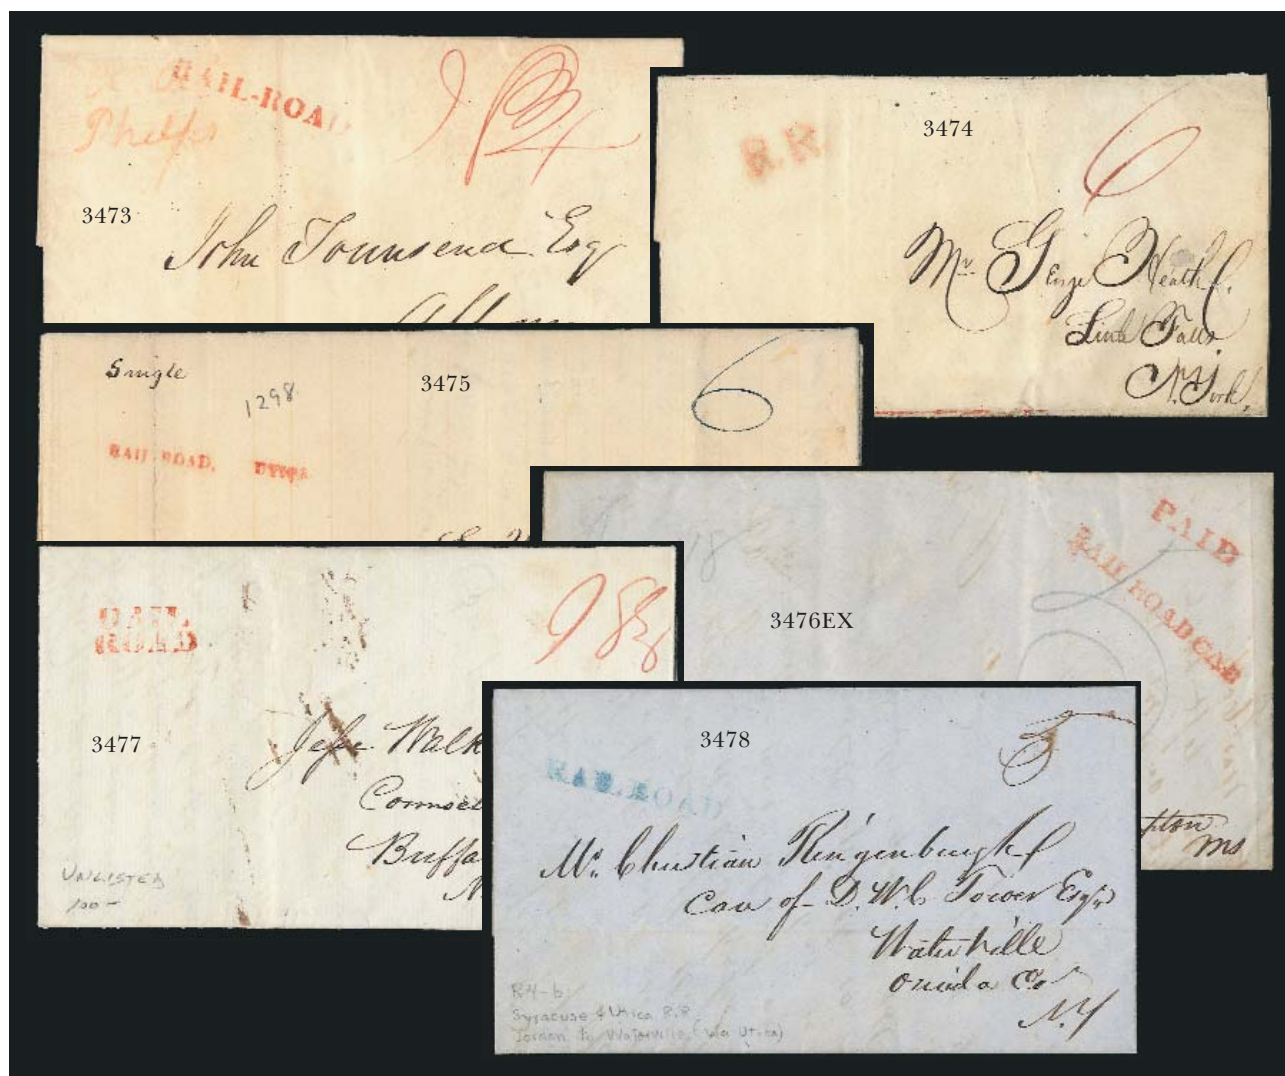 RAIL-ROAD
Phelps
3473
John Townsend Esq
3474
R.R.
6
Mr. George Heath
Little Falls
N. York
Single
1298
3475
6
RAIL ROAD, UTICA
PAID
RAIL ROAD CAR
18
3476EX
ms
RAIL
ROAD
3477
Counsel
Buffa
N.
UNLISTED
100-
3478
5
RAILROAD
Mr. Christian Ringenburgh
Care of D. W. C. Tower Esqr
Waterville
Oneida Co
N.Y
R4-b
Syracuse & Utica R.R.
Jordan to Waterville (via Utica)